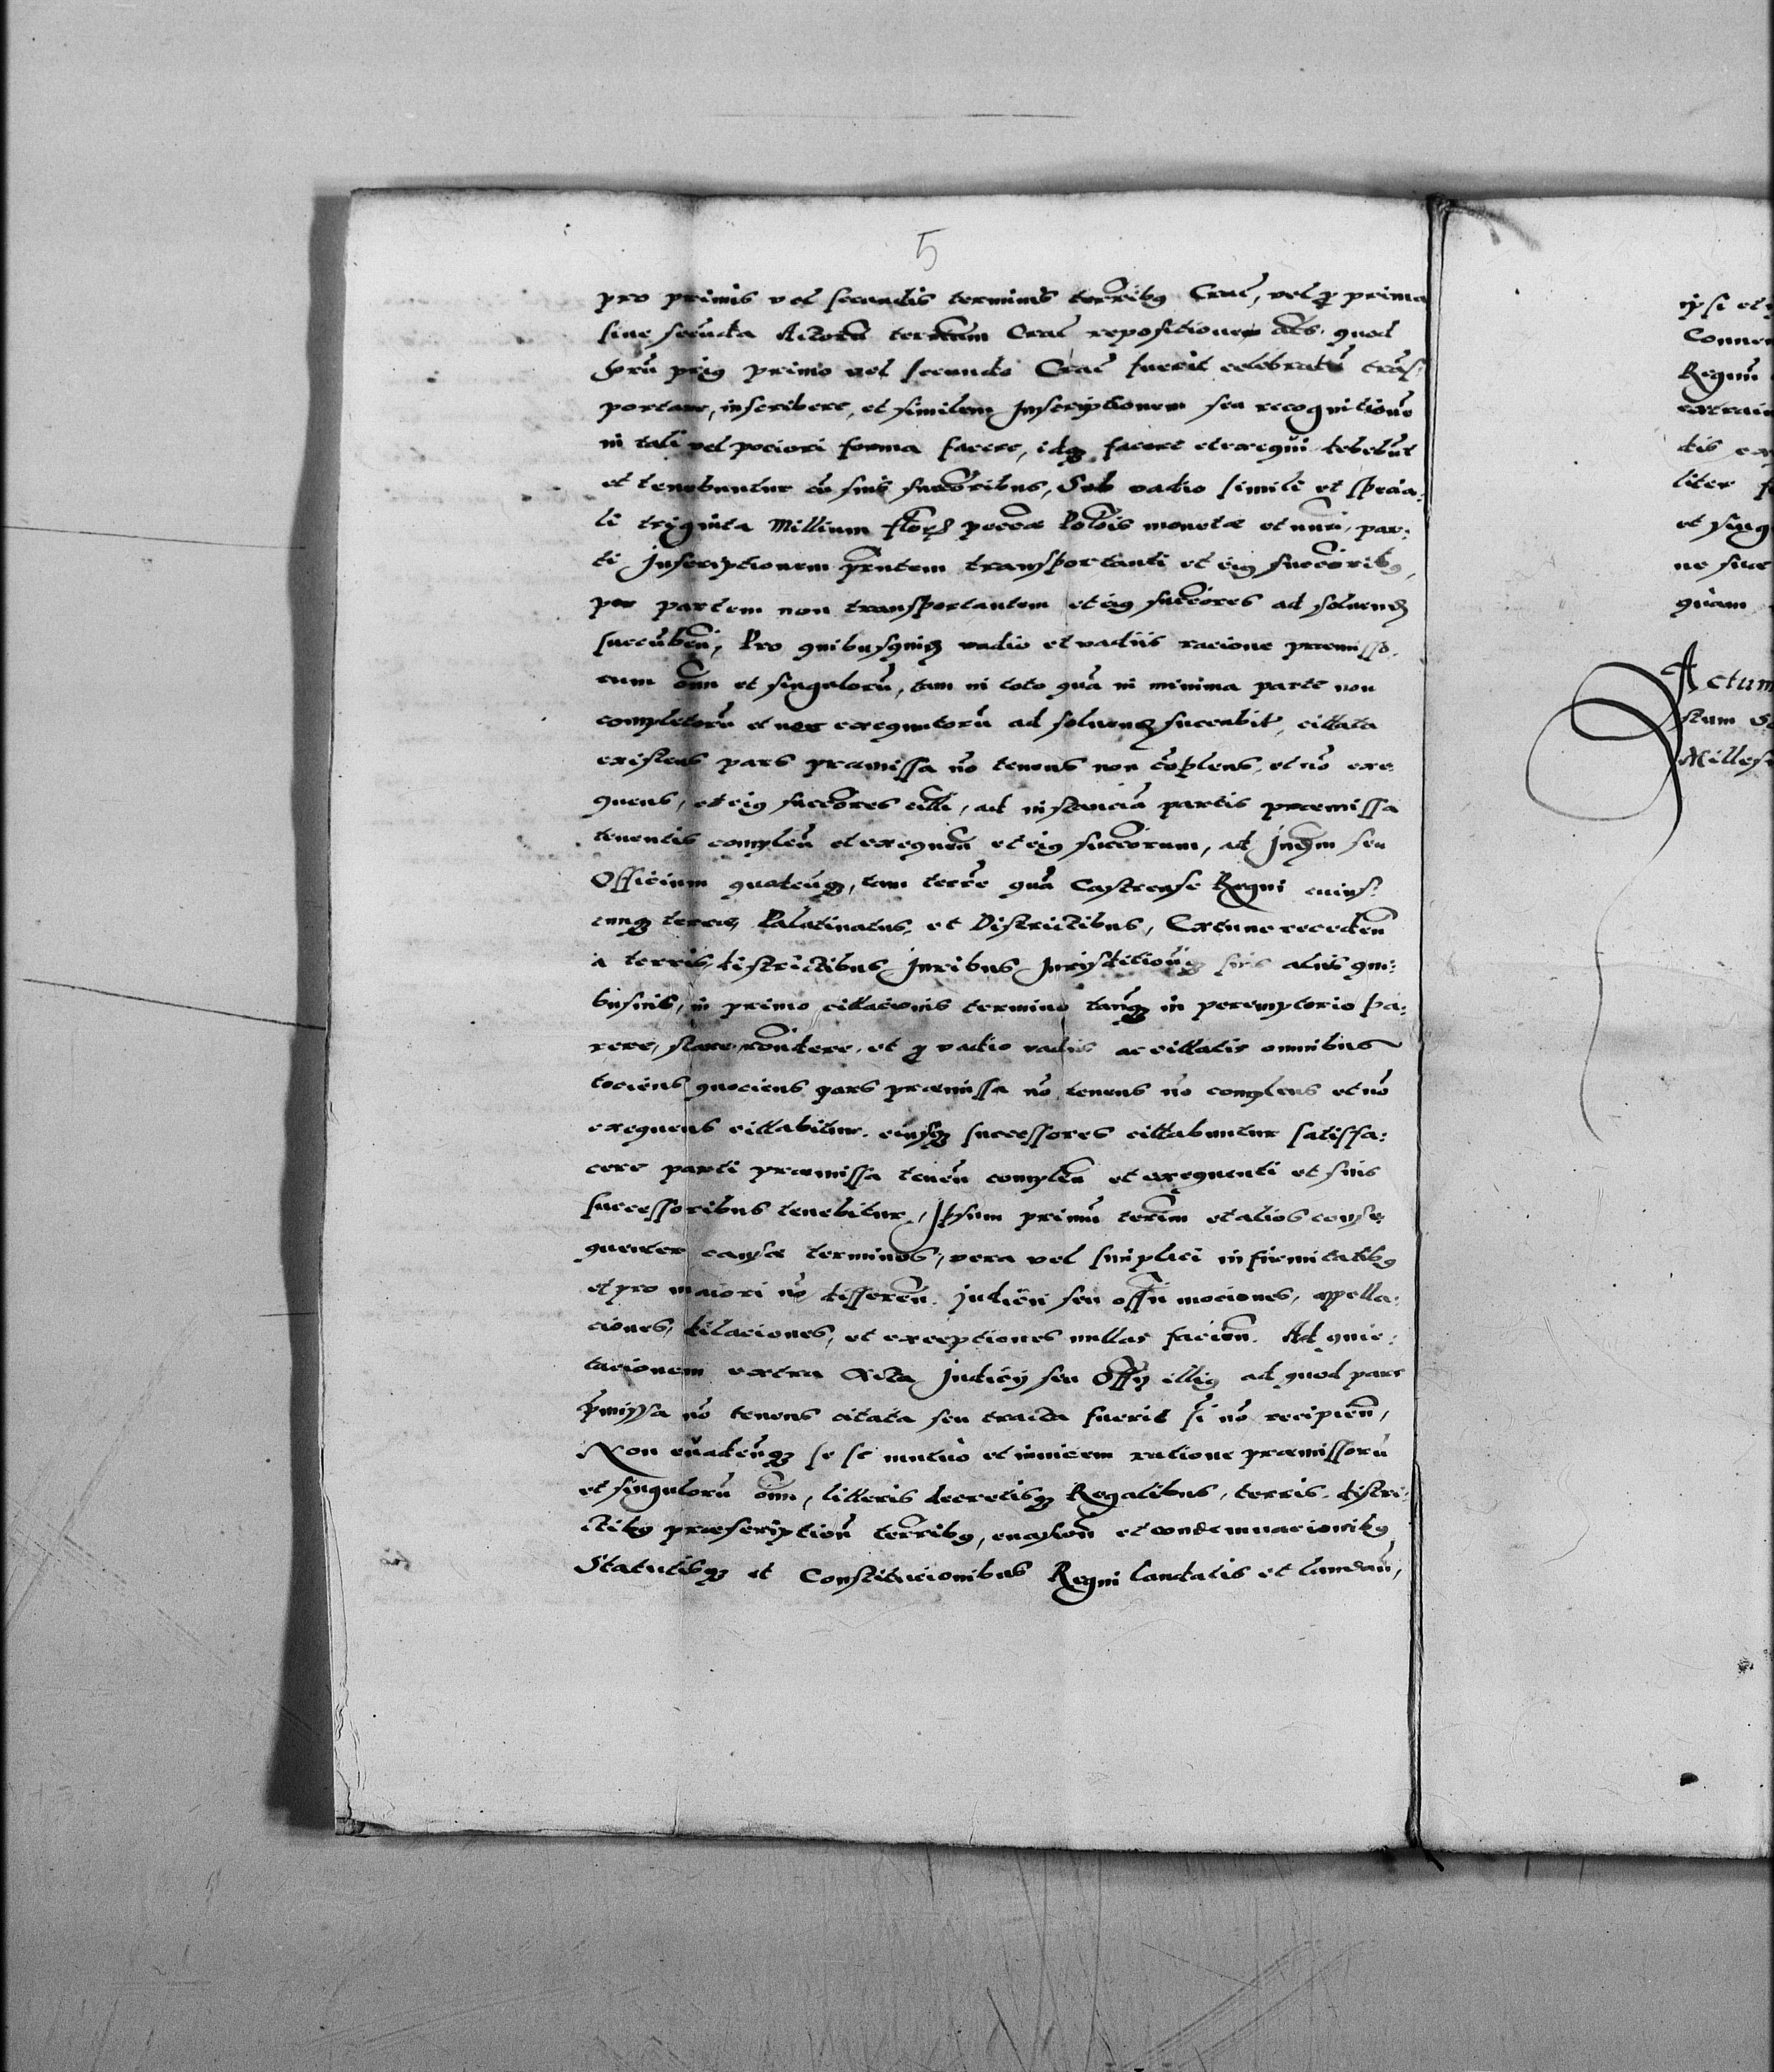 5
pro primis vel secundis terminis terrẽribus Crac̃, vel p̱ prima
siue secũda Actorũ terrẽstrium Crac̃ repositionem quod
horũ prius primo vel secundo Crac̃ fuerit celebratũ trãs:
portare, inscribere, et similem Inscriptionem seu recognitionẽ
in tali vel pociori forma facere, idq̃ facere et exequi debebũt
et tenebuntur cũ suis succõribus, Sub vadio simili et specia:
li triginta Millium flor̃ pecc̃æ Polõis monetæ et nũri, par:
ti Inscriptionem p̃ntem transportanti et eius succõribus,
per partem non transportantem et eius succõres ad soluend̃
succũbeñ, Pro quibusquidẽ vadio et vadiis racione præmisso.
rum oĩm et singulorũ, tam in toto quã in minima parte non
completorũ et non exequutorũ ad soluend̃ succubit̃, cittata
existens pars præmissa nõ tenens non cõplens, et nõ exe
quens, et eius succõres citti, ad instanciã partis præmissa
tenentis compleñ et exequeñ et eius succõrum, ad Iudm̃ seu
Officium quodcũq̃, tam terrẽ quã Castrense Regni cuius:
cunq̃ terræ, Palatinatus, et Districtibus, Extunc recedeñ
à terris, districtibus Iuribus Iurisditioniб̃ suis aliis qui:
busuis, in primo cittacionis termino tanq̃ in peremptorio pa:
rere, stare, rõndere, et p̱ vadio vadiis ac cittatis omnibus
tociens quociens pars præmissa nõ tenens nõ complens et nõ
exequens cittabitur. eiusq̃ successores cittabuntur satisfa:
cere parti præmissa teneñ compleñ et exequenti et suis
successoribus tenebitur, Ipsum primũ termĩ et alios conse
quenter causæ terminos, vera vel simplici infirmitatibus
et pro maiori nõ differeñ. Iudicĩ seu offĩi mociones, appella:
ciones, dilaciones, et exceptiones nullas facieñ. Ad quie:
tacionem extra Acta Iudicij seu Offĩj illius ad quod pars
p̃missa nõ tenens citata seu tracta fuerit sĩ nõ recipieñ,
Non euadeñq̃ se se mutuò et inuicem ratione præmissorũ
et singulorũ oĩm, litteris decretisq̃ Regalibus, terris. distri:
ctibus præscriptioñ terrẽribus, euasioñ et condemnacionibus
Statutisq̃ et Constitucionibus Regni laudatis et laudañ,
ipsi et
Regnũ
dis
liter
et sing
ne siue
quàm
Actum
Milles